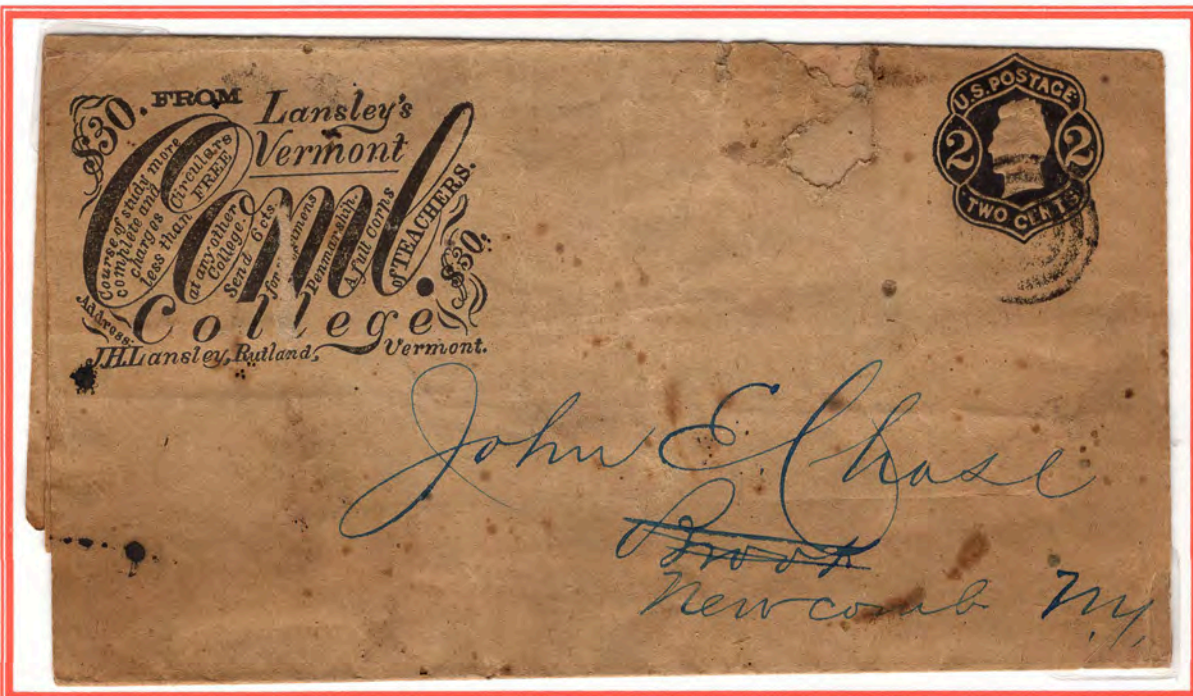 $30. FROM Lansley's
Vermont
Coml.
College
Course of study more
complete and
charges
less than
Circulars
FREE
at any other
College.
Send 6 cts.
for
Penmanship.
A full Corps
of TEACHERS.
$30.
Address:
J.H.Lansley, Rutland, Vermont.
U.S. POSTAGE
2 2
TWO CENTS
John E Chase
Newcomb N.Y.